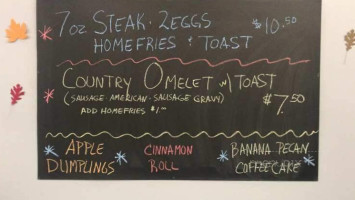 7oz STEAK · 2EGGS $10.50
HOMEFRIES & TOAST
COUNTRY OMELET w/ TOAST
(SAUSAGE · AMERICAN · SAUSAGE GRAVY) $7.50
ADD HOMEFRIES $1.00
APPLE DUMPLINGS
CINNAMON ROLL
BANANA PECAN COFFEECAKE